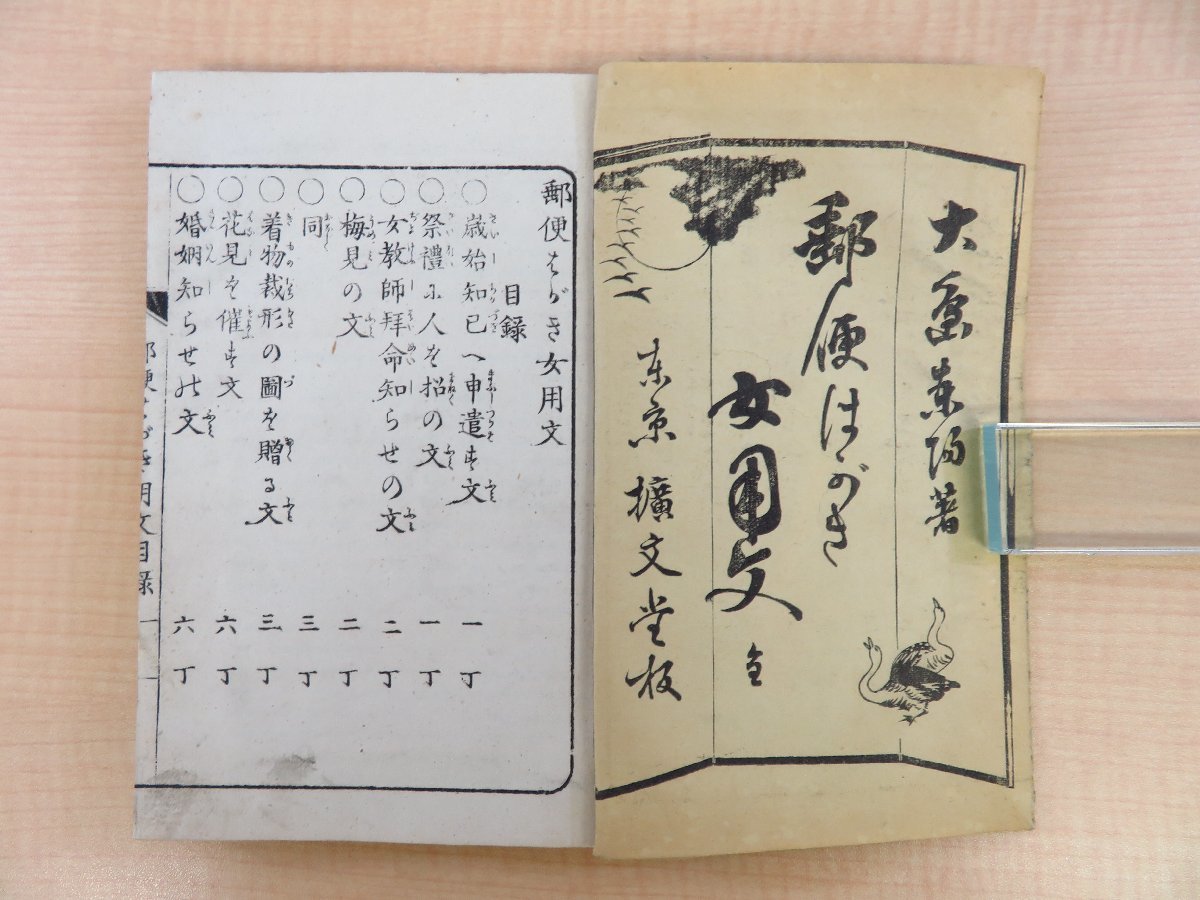 大島東陽著
郵便はがき
女用文 全
東京 擴文堂板
郵便はがき女用文
目録
○歳始知己へ申遣す文 一丁
○祭禮に人を招の文 一丁
○女教師拜命知らせの文 二丁
○梅見の文 二丁
○同 三丁
○着物裁形の圖を贈る文 三丁
○花見を催す文 六丁
○婚姻知らせの文 六丁
郵便はがき女用文目録 一